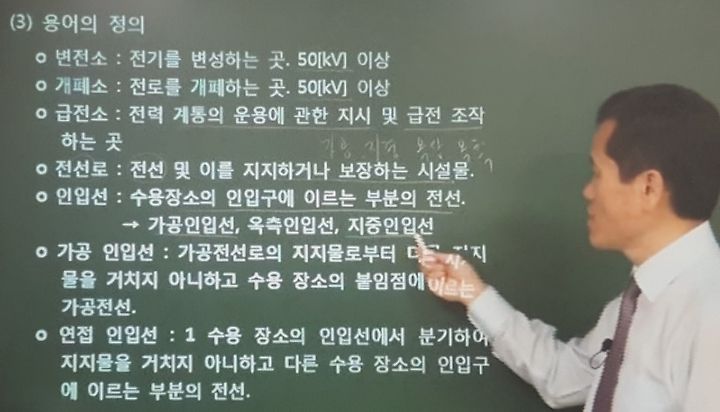 (3) 용어의 정의
변전소 : 전기를 변성하는 곳. 50[kV] 이상
개폐소 : 전로를 개폐하는 곳. 50[kV] 이상
급전소 : 전력 계통의 운용에 관한 지시 및 급전 조작
하는 곳
가공 지중 옥상 옥측
전선로 : 전선 및 이를 지지하거나 보장하는 시설물.
인입선 : 수용장소의 인입구에 이르는 부분의 전선.
→ 가공인입선, 옥측인입선, 지중인입선
가공 인입선 : 가공전선로의 지지물로부터 다른 지지
물을 거치지 아니하고 수용 장소의 붙임점에 이르는
가공전선.
연접 인입선 : 1 수용 장소의 인입선에서 분기하여
지지물을 거치지 아니하고 다른 수용 장소의 인입구
에 이르는 부분의 전선.